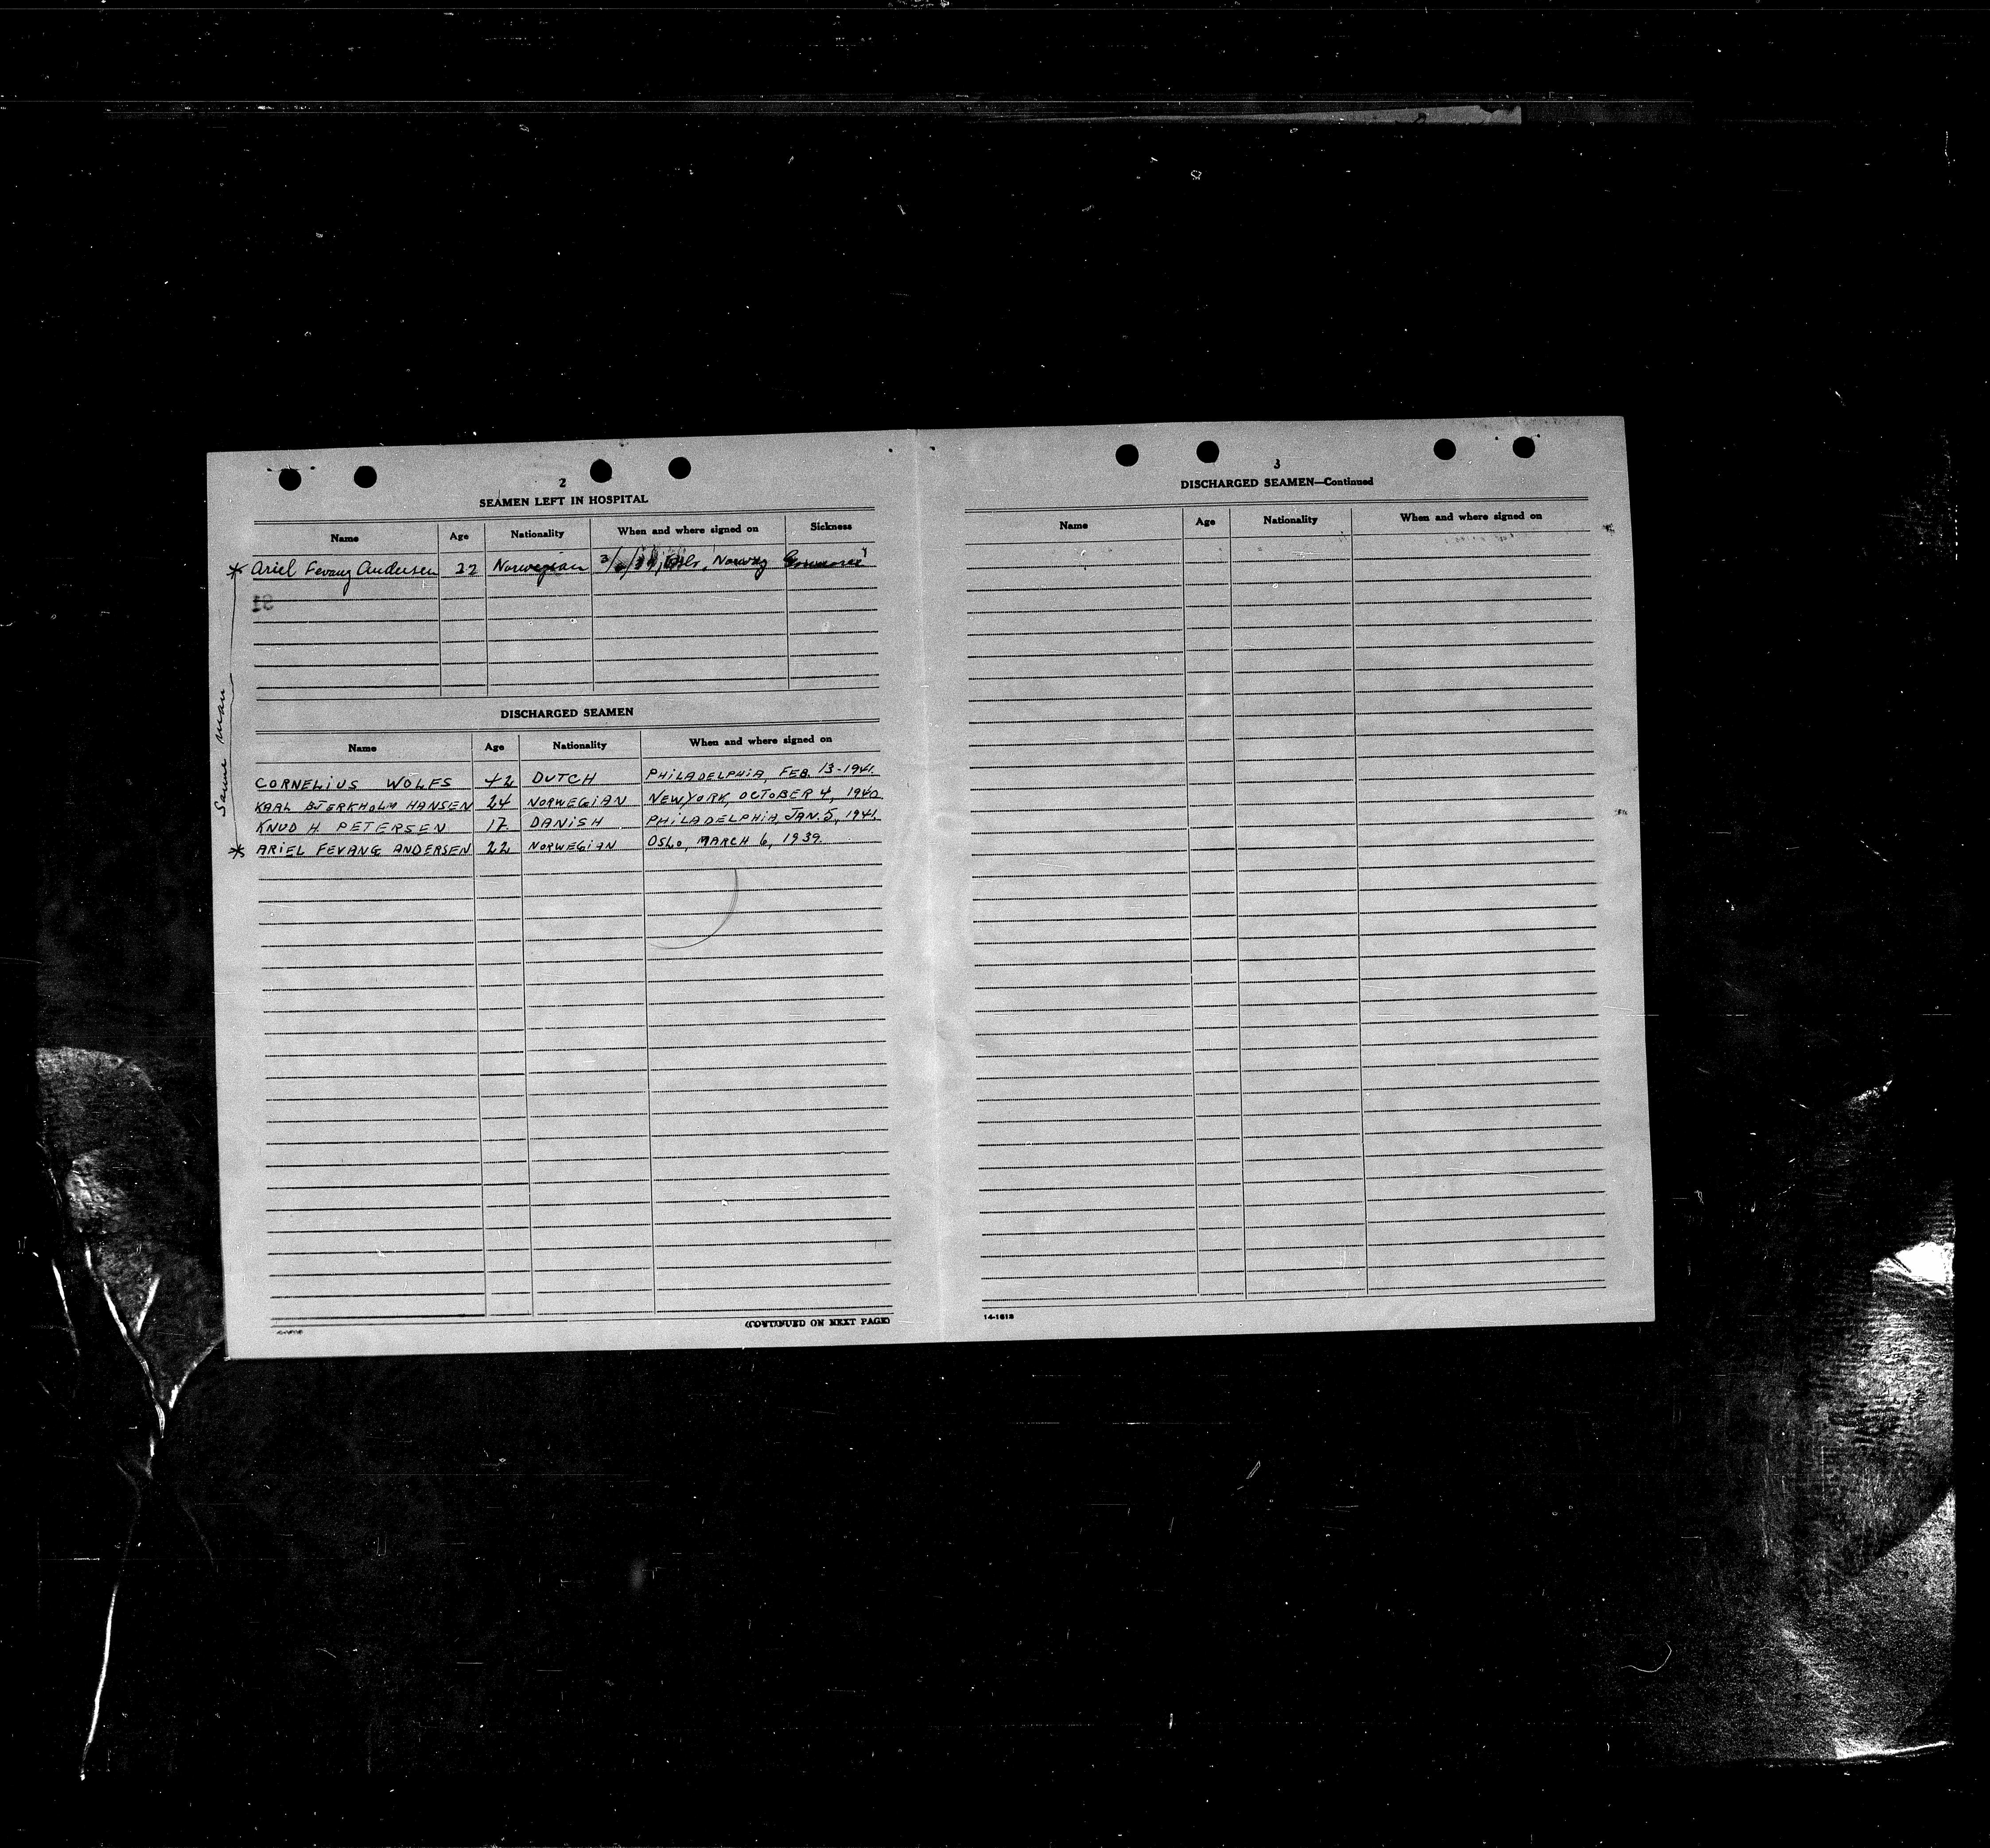 2
SEAMEN LEFT IN HOSPITAL
Name Age Nationality When and where signed on Sickness
* Ariel Fevang Andersen 22 Norwegian 3/6/39, Oslo, Norway
Same man
DISCHARGED SEAMEN
Name Age Nationality When and where signed on
CORNELIUS WOLFS 42 DUTCH PHILADELPHIA, FEB. 13-1941.
KARL BJERKHOLM HANSEN 24 NORWEGIAN NEW YORK, OCTOBER 4, 1940
KNUD H. PETERSEN 17 DANISH PHILADELPHIA, JAN. 5, 1941
* ARIEL FEVANG ANDERSEN 22 NORWEGIAN OSLO, MARCH 6, 1939.
(CONTINUED ON NEXT PAGE)
3
DISCHARGED SEAMEN—Continued
Name Age Nationality When and where signed on
14-1613